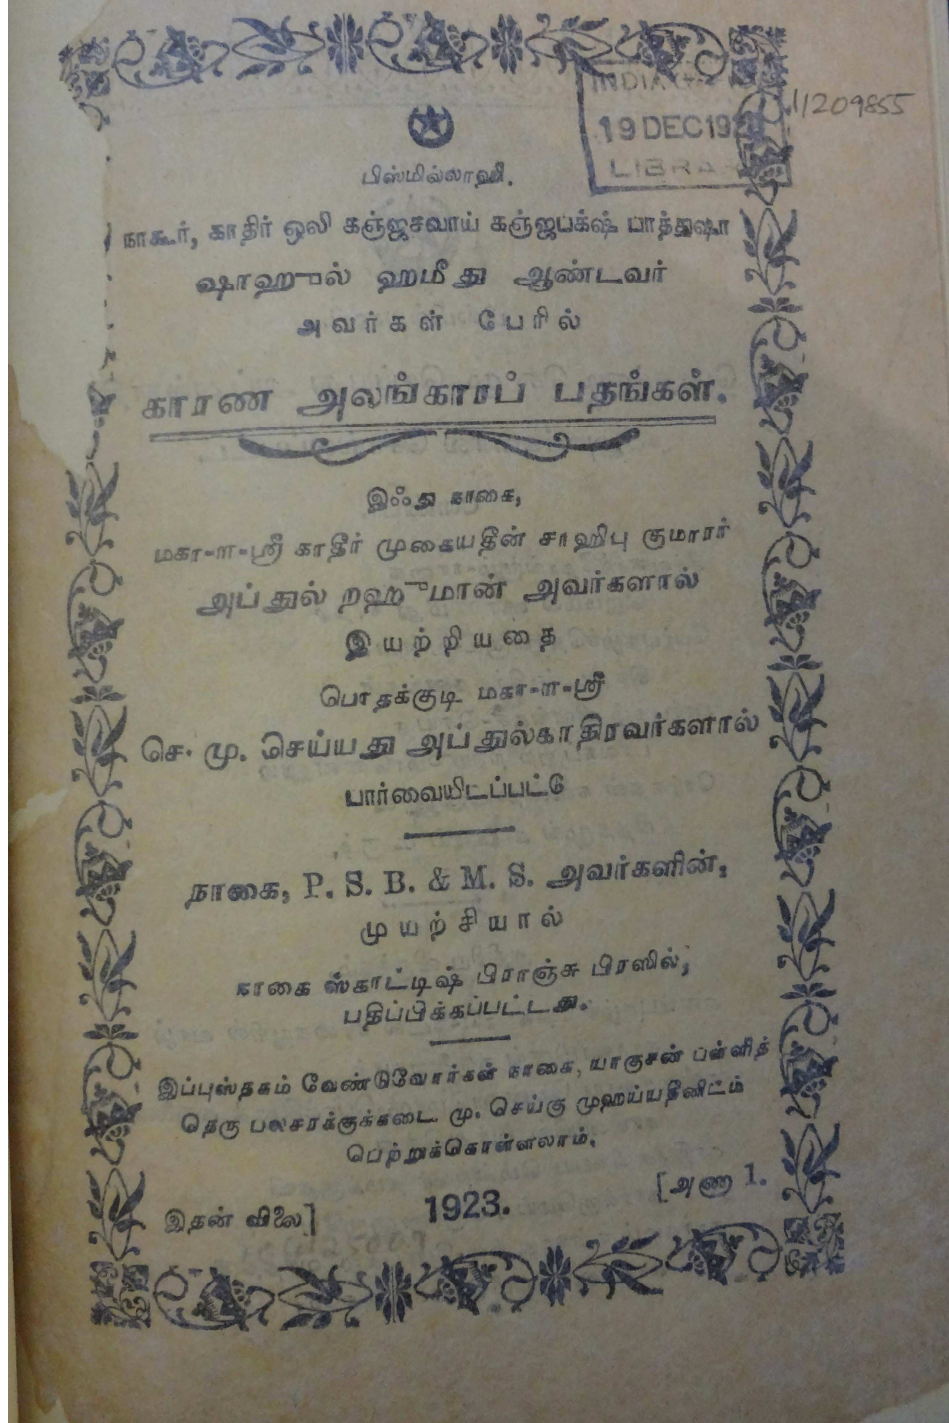 INDIA
19 DEC 192
LIBRA
11209855
பிஸ்மில்லாஹி.
நாகூர், காதிர் ஒலி கஞ்ஜசவாய் கஞ்ஜபக்ஷ் பாத்துஷா
ஷாஹுல் ஹமீது ஆண்டவர்
அவர்கள் பேரில்
காரண அலங்காரப் பதங்கள்.
இஃது நாகை,
மகா-ள-ஸ்ரீ காதிர் முகையதீன் சாஹிபு குமாரர்
அப்துல் றஹுமான் அவர்களால்
இயற்றியதை
பொதக்குடி மகா-ள-ஸ்ரீ
செ. மு. செய்யது அப்துல்காதிரவர்களால்
பார்வையிடப்பட்டு
நாகை, P. S. B. & M. S. அவர்களின்,
முயற்சியால்
நாகை ஸ்காட்டிஷ் பிராஞ்சு பிரஸில்,
பதிப்பிக்கப்பட்டது.
இப்புஸ்தகம் வேண்டுவோர்கள் நாகை, யாகுசன் பள்ளித்
தெரு பலசரக்குக்கடை மு. செய்கு முஹய்யதீனிடம்
பெற்றுக்கொள்ளலாம்.
இதன் விலை] 1923. [அணா 1.